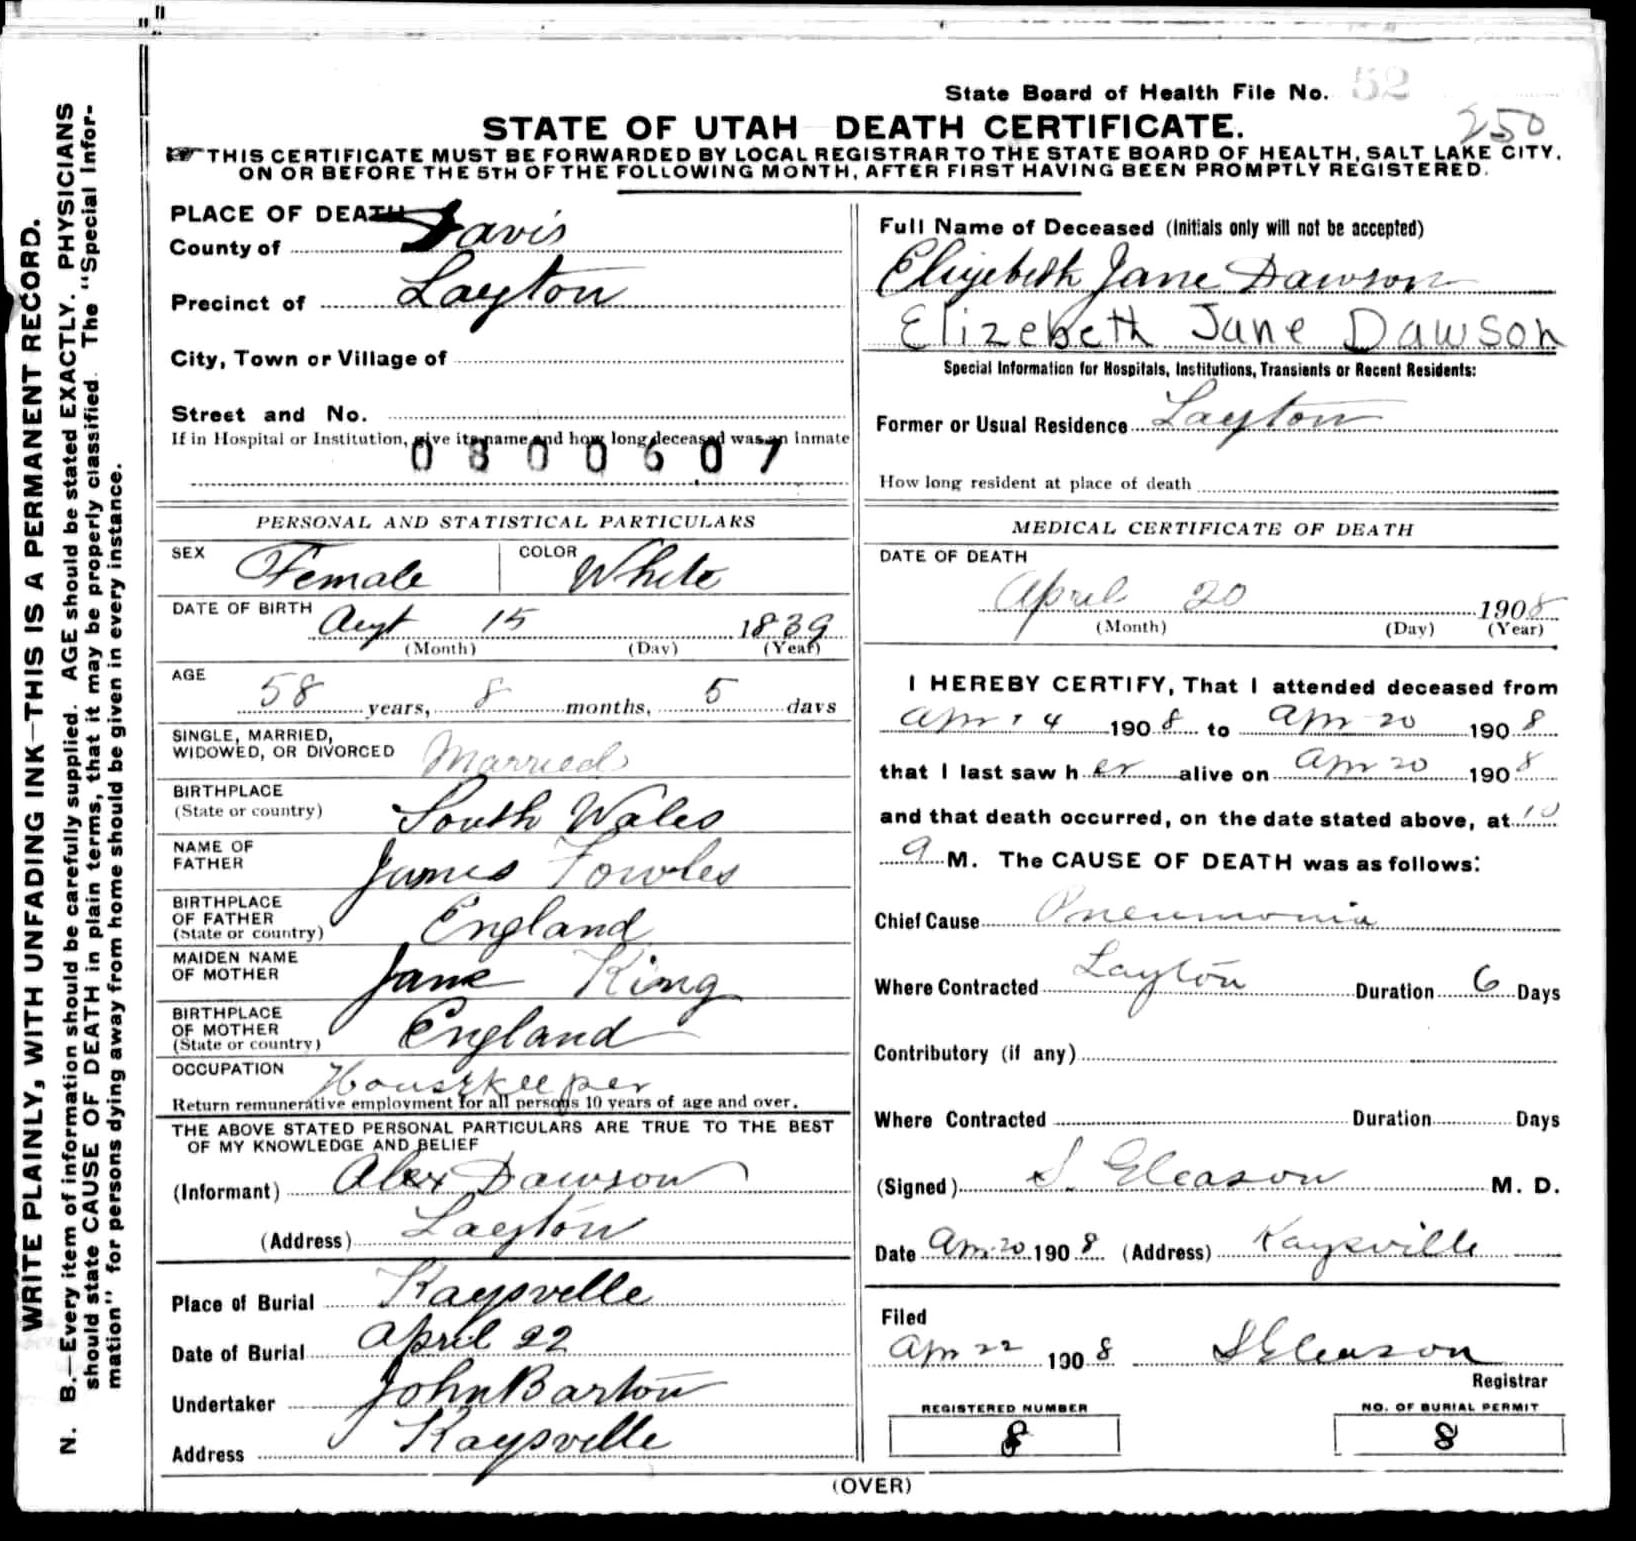 State Board of Health File No. 52
250
STATE OF UTAH DEATH CERTIFICATE.
THIS CERTIFICATE MUST BE FORWARDED BY LOCAL REGISTRAR TO THE STATE BOARD OF HEALTH, SALT LAKE CITY,
ON OR BEFORE THE 5TH OF THE FOLLOWING MONTH, AFTER FIRST HAVING BEEN PROMPTLY REGISTERED.
WRITE PLAINLY, WITH UNFADING INK—THIS IS A PERMANENT RECORD.
N. B.—Every item of information should be carefully supplied. AGE should be stated EXACTLY. PHYSICIANS
should state CAUSE OF DEATH in plain terms, that it may be properly classified. The "Special Infor-
mation" for persons dying away from home should be given in every instance.
PLACE OF DEATH
County of Davis
Precinct of Layton
City, Town or Village of
Street and No.
If in Hospital or Institution, give its name and how long deceased was an inmate
0800607
PERSONAL AND STATISTICAL PARTICULARS
SEX Female COLOR White
DATE OF BIRTH Augt 15 1839
(Month) (Day) (Year)
AGE
58 years, 8 months, 5 days
SINGLE, MARRIED,
WIDOWED, OR DIVORCED Married
BIRTHPLACE
(State or country) South Wales
NAME OF
FATHER James Fowles
BIRTHPLACE
OF FATHER
(State or country) England
MAIDEN NAME
OF MOTHER Jane King
BIRTHPLACE
OF MOTHER
(State or country) England
OCCUPATION Housekeeper
Return remunerative employment for all persons 10 years of age and over.
THE ABOVE STATED PERSONAL PARTICULARS ARE TRUE TO THE BEST
OF MY KNOWLEDGE AND BELIEF
(Informant) Alex Dawson
(Address) Layton
Place of Burial Kaysville
Date of Burial April 22
Undertaker John Barton
Address Kaysville
Full Name of Deceased (Initials only will not be accepted)
Elizebeth Jane Dawson
Elizebeth Jane Dawson
Special Information for Hospitals, Institutions, Transients or Recent Residents:
Former or Usual Residence Layton
How long resident at place of death
MEDICAL CERTIFICATE OF DEATH
DATE OF DEATH
April 20 1908
(Month) (Day) (Year)
I HEREBY CERTIFY, That I attended deceased from
Apr 14 1908 to Apr 20 1908
that I last saw her alive on Apr 20 1908
and that death occurred, on the date stated above, at 10
a M. The CAUSE OF DEATH was as follows:
Chief Cause Pneumonia
Where Contracted Layton Duration 6 Days
Contributory (if any)
Where Contracted Duration Days
(Signed) S. Gleason M. D.
Date Apr 20 1908 (Address) Kaysville
Filed
Apr 22 1908 S Gleason
Registrar
REGISTERED NUMBER
8
NO. OF BURIAL PERMIT
8
(OVER)